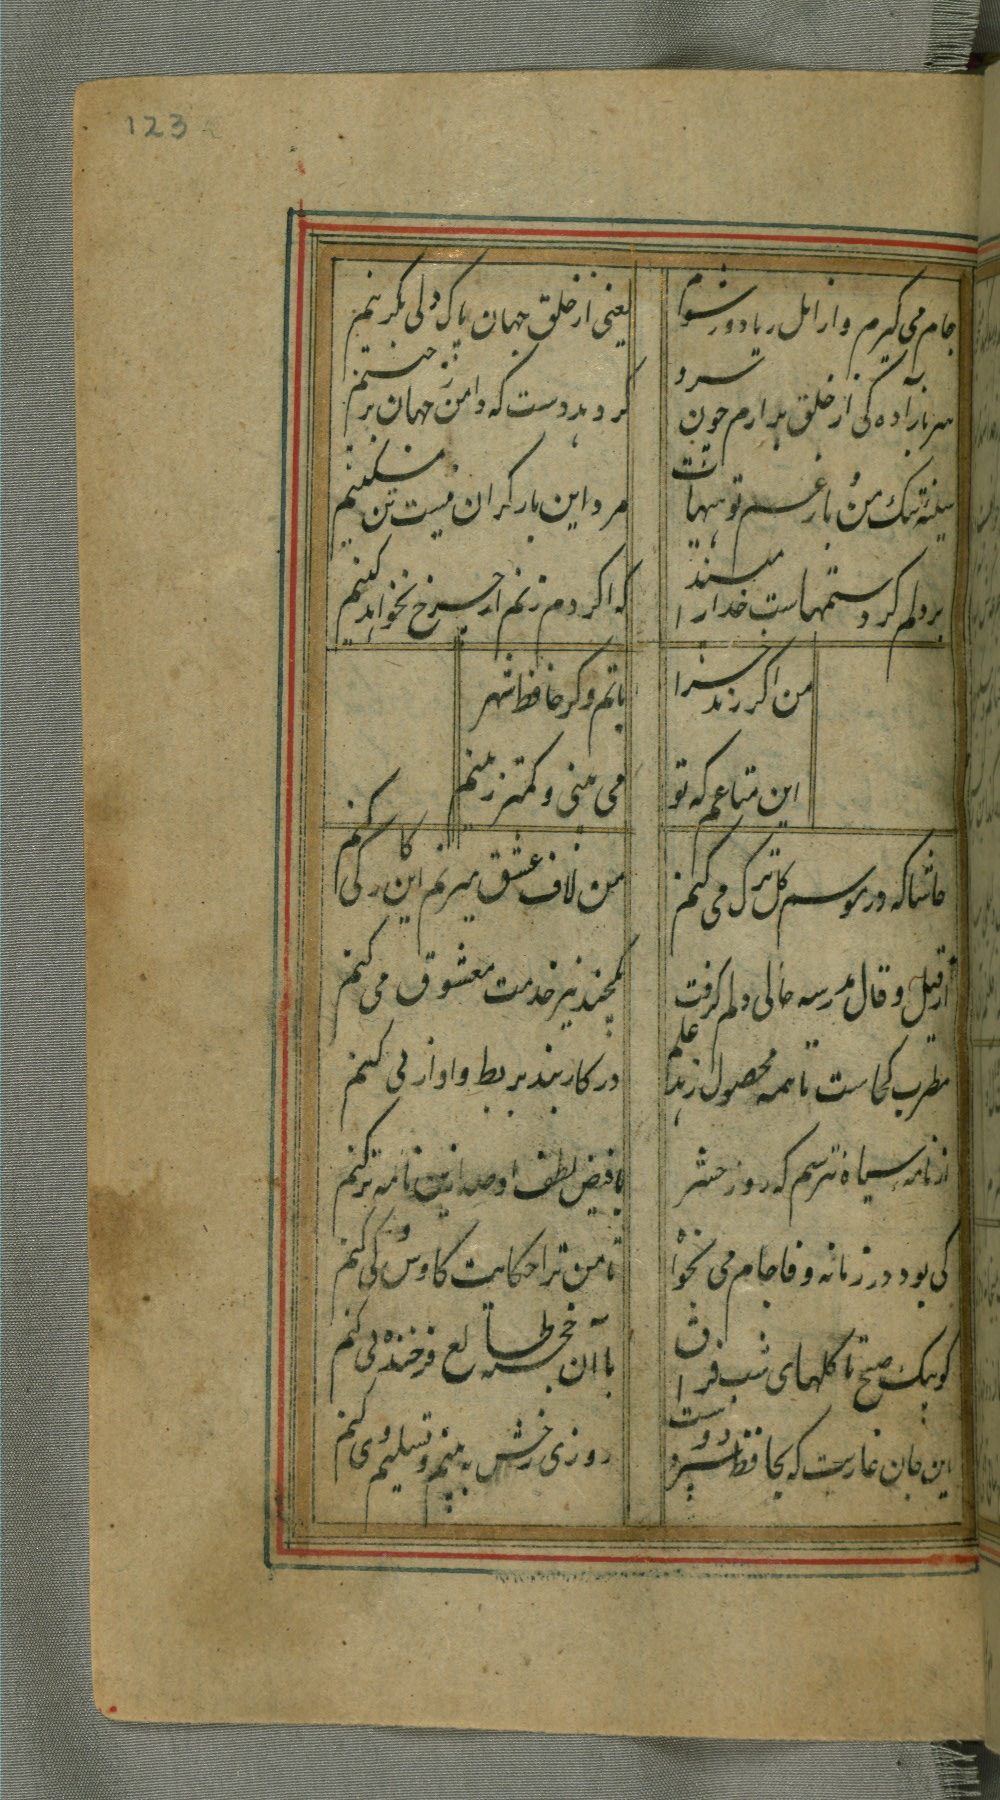 123
جام می گیرم و از اهل ریا دور شوم
یعنی از خلق جهان پاک دلی بگزینم
سر بآزاده کی از خلق برارم چون سرو
گر دهد دست که دامن ز جهان برچینم
سینهٔ تنک من و بار غم تو هیهات
مرد این بار گران نیست تن مسکینم
بر دلم گرد ستمهاست خدا را مپسند
که اگر دم زنم از چرخ نخواهد کینم
من اگر رند خراباتم و گر حافظ شهر
این متاعم که تو می بینی و کمتر زینم
حاشا که در موسم گل ترک می کنم
من لاف عشق میزنم این کار کی کنم
از قیل و قال مدرسه حالی دلم گرفت
یکچند نیز خدمت معشوق می کنم
مطرب کجاست تا همه محصول زهد علم
در کار بند بربط و اواز نی کنم
از نامه سیاه نترسم که روز حشر
با فیض لطف او صد ازین نامه طی کنم
کی بود در زمانه وفا جام می بخواه
تا من ترا حکایت کاوس و کی کنم
کو پیک صبح تا گلهای شب فراق
با آن خجسته طالع فرخنده پی کنم
این جان عاریت که بحافظ سپرد دوست
روزی رخش به بینم و تسلیم وی کنم